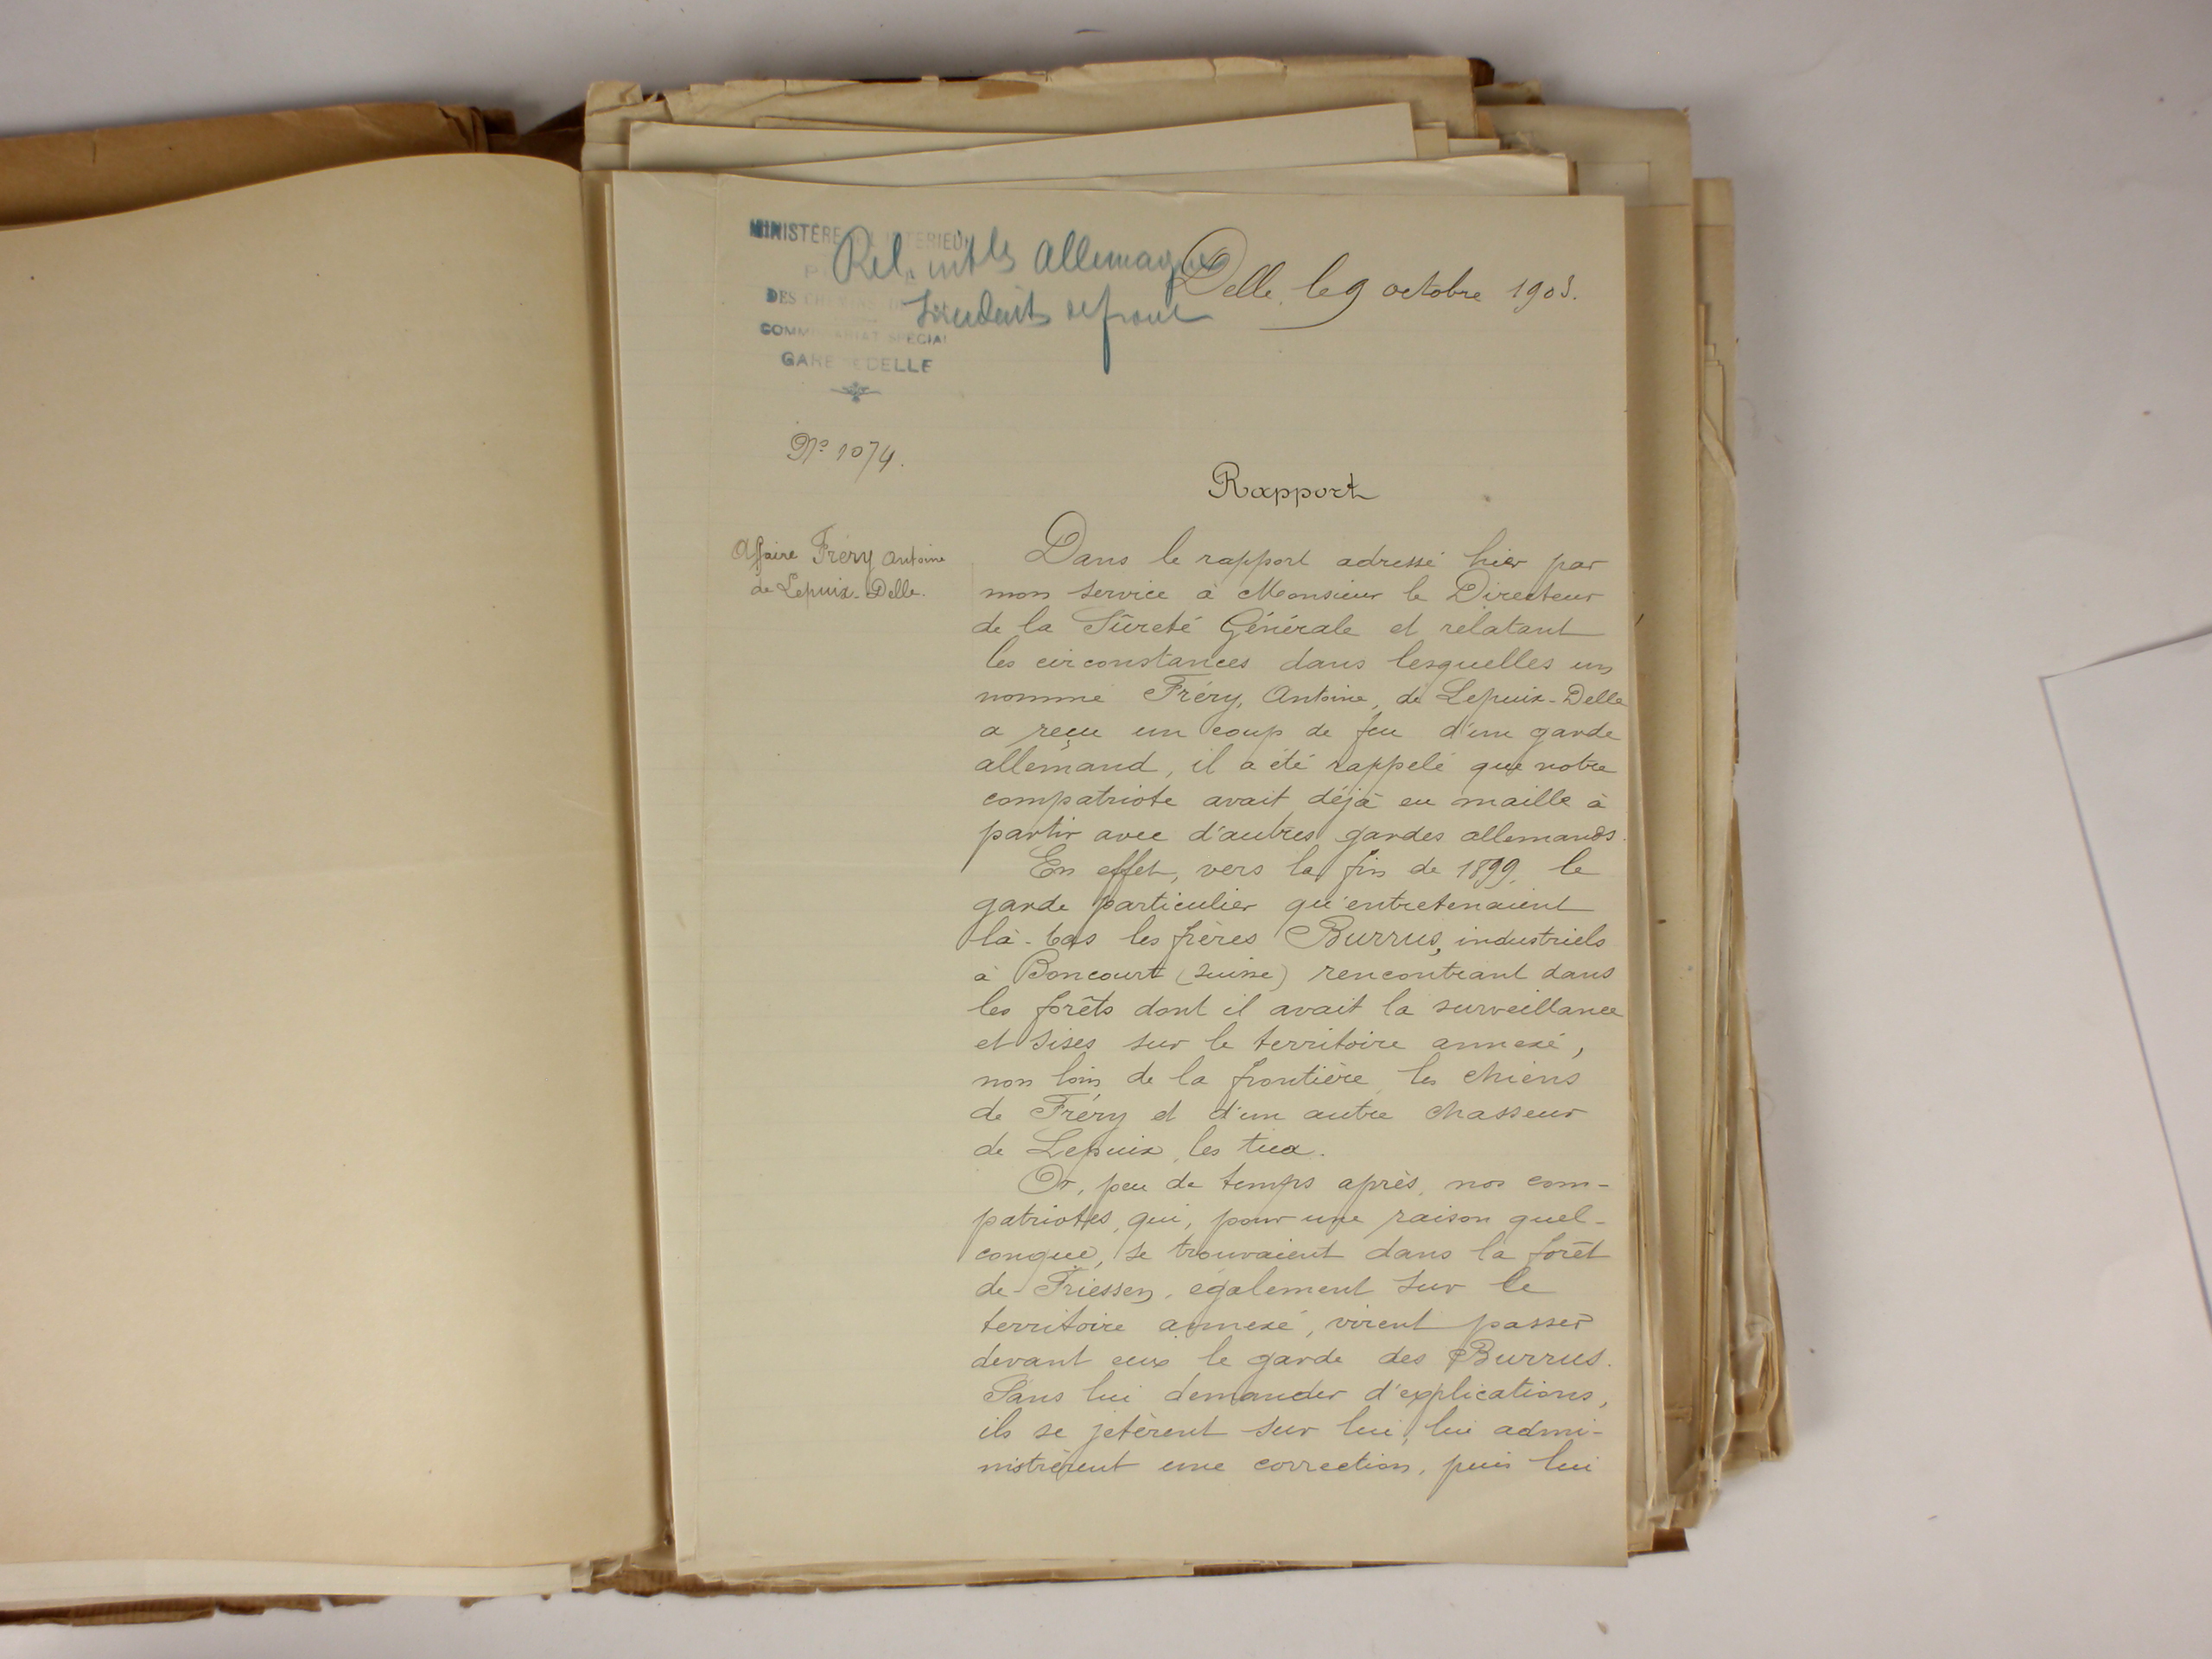 MINISTÈRE DE L'INTÉRIEUR
DES CHEMINS
COMMISSARIAT SPÉCIAL
GARE DE DELLE
Allemagne
Delle, le 9 octobre 1903.
N° 1074.
Rapport
Affaire Fréry Antoine
de Lepuix-Delle.
Dans le rapport adressé hier par
mon service à Monsieur le Directeur
de la Sûreté Générale et relatant
les circonstances dans lesquelles un
nommé Fréry, Antoine, de Lepuix-Delle
a reçu un coup de feu d'un garde
allemand, il a été rappelé que notre
compatriote avait déjà eu maille à
partir avec d'autres gardes allemands.
En effet, vers la fin de 1899, le
garde particulier qu'entretenaient
là-bas les frères Burrus, industriels
à Boncourt (Suisse) rencontrant dans
les forêts dont il avait la surveillance
et sises sur le territoire annexé,
non loin de la frontière, les chiens
de Fréry et d'un autre chasseur
de Lepuix, les tua.
Or, peu de temps après, nos com-
patriotes, qui, pour une raison quel-
conque, se trouvaient dans la forêt
de Friessen, également sur le
territoire annexé, virent passer
devant eux le garde des Burrus.
Sans lui demander d'explications,
ils se jetèrent sur lui, lui admi-
nistrèrent une correction, puis lui